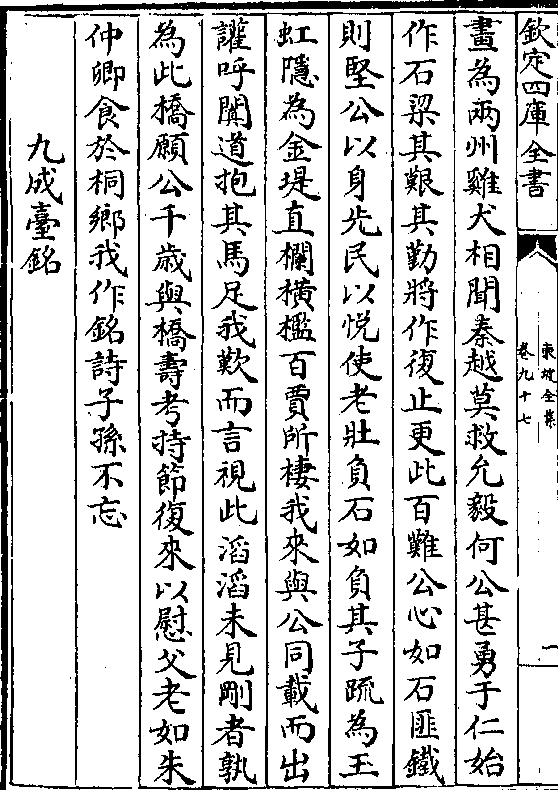 欽定四庫全書
東坡全集
卷九十七
一
畫為兩州雞犬相聞秦越莫救允毅何公甚勇于仁始
作石梁其艱其勤將作復止更此百難公心如石匪鐵
則堅公以身先民以悅使老壯負石如負其子疏為玉
虹隱為金堤直欄橫檻百賈所棲我來與公同載而出
讙呼闐道抱其馬足我歎而言視此滔滔未見剛者孰
為此橋願公千歲與橋壽考持節復來以慰父老如朱
仲卿食於桐鄉我作銘詩子孫不忘
九成臺銘